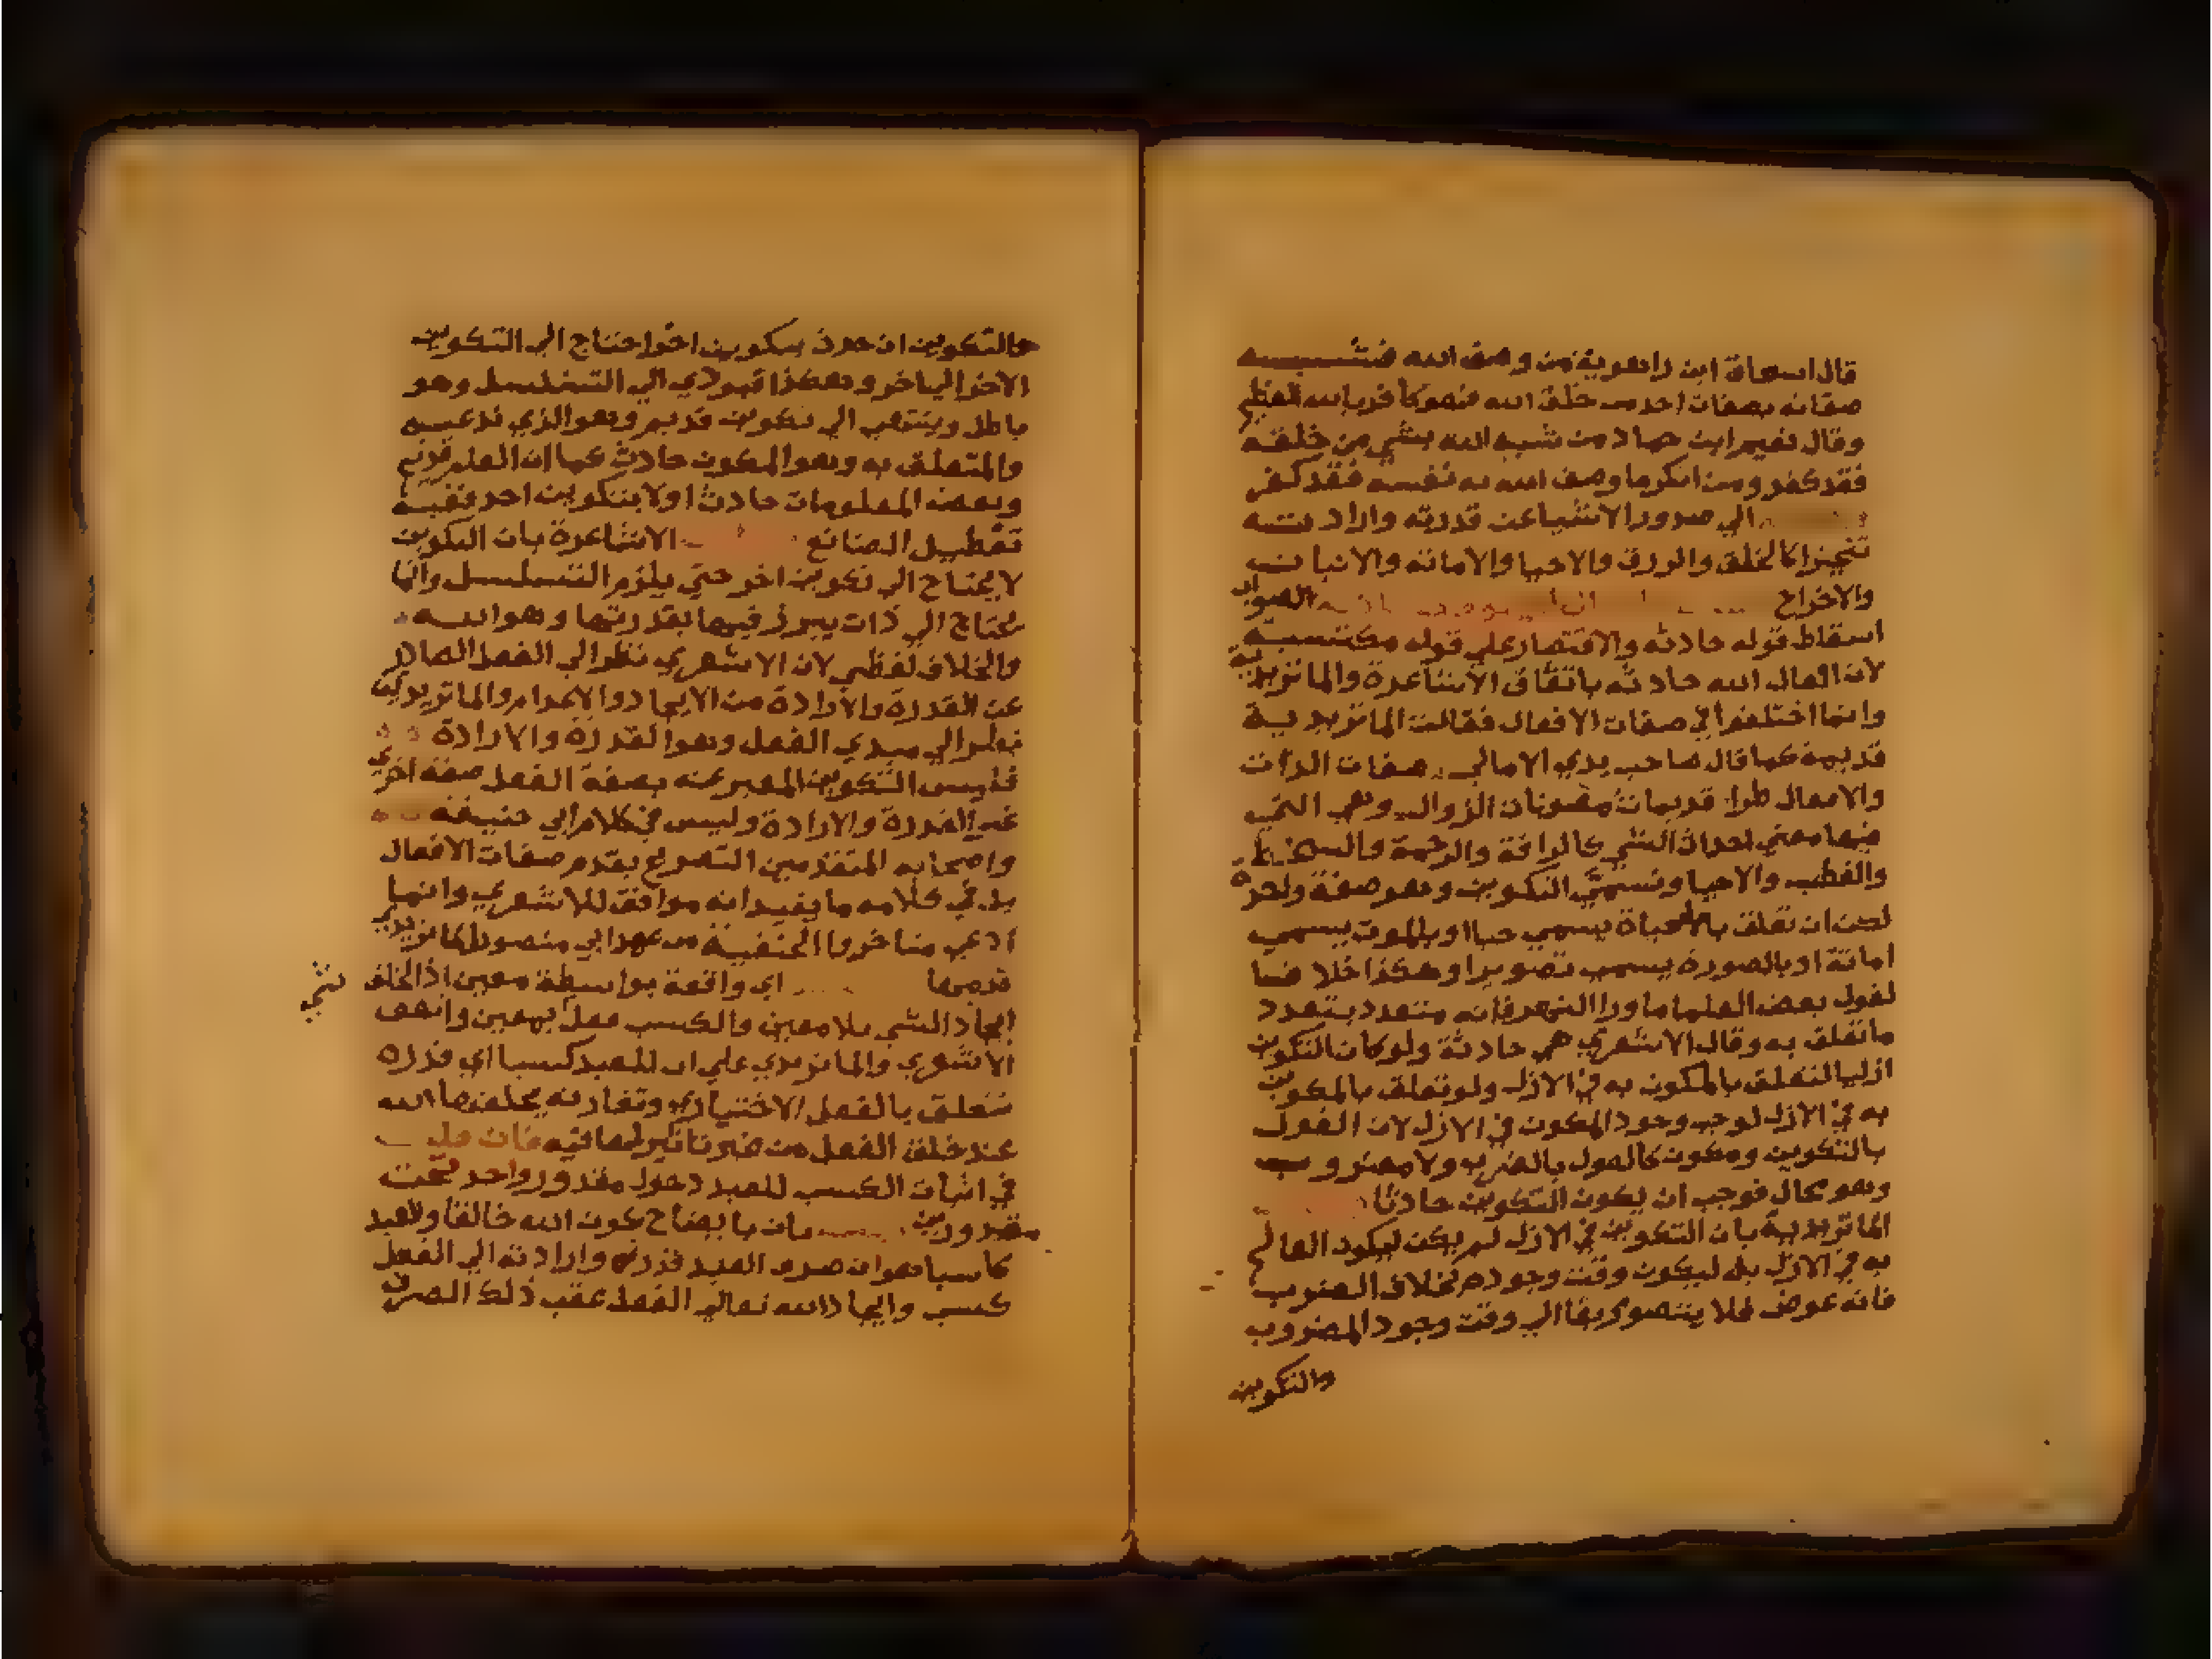 قال اسحاق ابن راهوية من وصف الله فشبه
صفاته بصفات احد من خلق الله فهو كافر بالله العظيم
وقال نعيم ابن حماد من شبه الله بشي من خلقه
فقد كفر ومن انكر ما وصف الله به نفسه فقد كفر
الي صدور الاشيا عن قدرته وارادته
تنجيزا كالخلق والرزق والاحيا والاماته والانبات
والاخراج الصواب
اسقاط قوله حادثه والاقتصار علي قوله مكتسبة
لان افعال الله حادثه باتفاق الاشاعرة والماتريدية
وانما اختلفوا في صفات الافعال فقالت الماتريدية
قديمة كما قال صاحب بدي الامالي صفات الذات
والافعال طرا قديمات مصونات الزوال وهي التي
فيها معني احداث الشي كالرافة والرحمة والسخط
والغضب والاحيا وتسمي التكوين وهو صفة واحدة
لكن ان تعلق بالحياة يسمي حياا وبالموت يسمي
اماتة او بالصورة يسمي تصويرا وهكذا خلافا
لقول بعض العلما ما ورا النهر فانه متعدد بتعدد
ما تعلق به وقال الاشعري هي حادثة ولو كان التكوين
ازليا لتعلق بالمكون به في الازل ولو تعلق بالمكون
به في الازل لوجب وجود المكون في الازل لان القول
بالتكوين ومكون كالقول بالضرب ولا مضروب
وهو محال فوجب ان يكون التكوين حادثا
الماتريدية بان التكوين في الازل لم يكن ليكون العالم
به في الازل بل ليكون وقت وجوده بخلاف الضرب
فانه عرض فلا يتصور بقا الي وقت وجود المضروب
والتكوين
والتكوين ان حدث بتكوين اخر احتاج الي التكوين
الاخر الي اخر وهكذا فيودي الي التسلسل وهو
باطل وينتهي الي تكوين قديم وهو الذي ندعيه
والمتعلق به وهو المكون حادث كما ان العلم قديم
وبعض المعلومات حادث اولا بتكوين احد ففيه
تعطيل الصانع الاشاعرة بان التكوين
لا يحتاج الي تكوين اخر حتي يلزم التسلسل وانما
يحتاج الي ذات يبرز فيها بقدرتها وهو الله
والخلاف لفظي لان الاشعري نظر الي الفعل الصادر
عن القدرة والارادة من الايجاد والاعدام والماتريدية
نظر الي مبدي الفعل وهو القدرة والارادة
فليس التكوين المعبر عنه بصفة الفعل صفة اخري
غير القدرة والارادة وليس في كلام ابي حنيفه
واصحابه المتقدمين التصريح بقدم صفات الافعال
بل في كلامه ما يفيد انه موافق للاشعري وانما
ادعي متاخروا الحنفية من عهد ابي منصور الماتريدي
قدمها اي واقعة بواسطة معين اذ الخلق
ايجاد الشي بلا معين والكسب فعل بمعين واتفق
الاشعري والماتريدي علي ان للعبد كسبا اي قدرة
تتعلق بالفعل الاختياري وتقارنه يخلقها الله
عند خلق الفعل من غير تاثير لها فيه فان
في اثبات الكسب للعبد دخول مقدور واحد تحت
مقدورين بان بايضاح كون الله خالقا والعبد
كاسبا هو ان صرف العبد قدرته وارادته الي الفعل
كسب وايجاد الله تعالي الفعل عقب ذلك الصرف